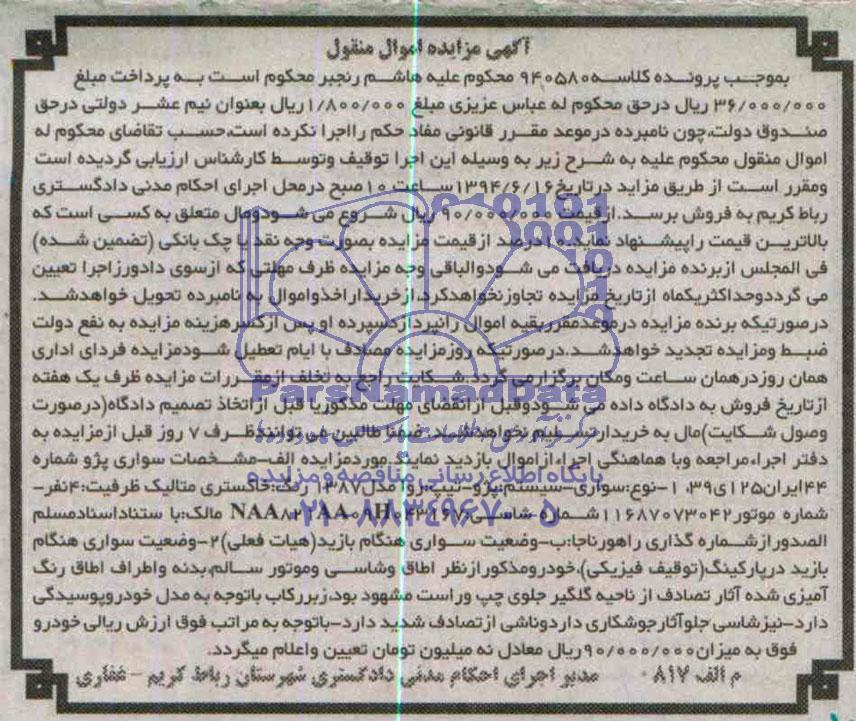 آگهی مزایده اموال منقول
بموجب پرونده کلاسه ۹۴۰۵۸۰ محکوم علیه هاشم رنجبر محکوم است به پرداخت مبلغ
۳۶/۰۰۰/۰۰۰ ریال درحق محکوم له عباس عزیزی مبلغ ۱/۸۰۰/۰۰۰ریال بعنوان نیم عشر دولتی درحق
صندوق دولت،چون نامبرده درموعد مقرر قانونی مفاد حکم رااجرا نکرده است،حسب تقاضای محکوم له
اموال منقول محکوم علیه به شرح زیر به وسیله این اجرا توقیف وتوسط کارشناس ارزیابی گردیده است
ومقرر است از طریق مزاید درتاریخ۱۳۹۴/۶/۱۶ساعت ۱۰صبح درمحل اجرای احکام مدنی دادگستری
رباط کریم به فروش برسد.ازقیمت ۹۰/۰۰۰/۰۰۰ ریال شروع می شودومال متعلق به کسی است که
بالاترین قیمت راپیشنهاد نماید.۱۰درصد ازقیمت مزایده بصورت وجه نقد یا چک بانکی (تضمین شده)
فی المجلس ازبرنده مزایده دریافت می شودوالباقی وجه مزایده ظرف مهلتی که ازسوی دادورزاجرا تعیین
می گرددوحداکثریکماه ازتاریخ مزایده تجاوزنخواهدکرد،ازخریداراخذواموال به نامبرده تحویل خواهدشد.
درصورتیکه برنده مزایده درموعدمقرربقیه اموال رانپردازدسپرده او پس ازکسرهزینه مزایده به نفع دولت
ضبط ومزایده تجدید خواهدشد.درصورتیکه روزمزایده مصادف با ایام تعطیل شودمزایده فردای اداری
همان روزدرهمان ساعت ومکان برگزارمی گردد.شکایت راجع به تخلف ازمقررات مزایده ظرف یک هفته
ازتاریخ فروش به دادگاه داده می شودوقبل ازانقضای مهلت مذکوریا قبل ازاتخاذ تصمیم دادگاه(درصورت
وصول شکایت)مال به خریدارتسلیم نخواهدشد.ضمنا طالبین می توانندظرف ۷ روز قبل ازمزایده به
دفتر اجراء،مراجعه وبا هماهنگی اجراء،ازاموال بازدید نمایند.موردمزایده الف-مشخصات سواری پژو شماره
۴۴ایران۱۲۵ی۳۹، ۱-نوع:سواری-سیستم:پژو-تیپ:روا مدل:۱۳۸۷ رنگ:خاکستری متالیک ظرفیت:۴نفر-
شماره موتور۱۱۶۸۷۰۷۳۰۴۲شماره شاسی مالک:با ستناداسنادمسلم
الصدورازشماره گذاری راهورناجا:ب-وضعیت سواری هنگام بازید(هیات فعلی)۲-وضعیت سواری هنگام
بازید درپارکینگ(توقیف فیزیکی)،خودرومذکورازنظر اطاق وشاسی وموتور سالم،بدنه واطراف اطاق رنگ
آمیزی شده آثار تصادف از ناحیه گلگیر جلوی چپ وراست مشهود بود،زیررکاب باتوجه به مدل خودروپوسیدگی
دارد-نیزشاسی جلوآثارجوشکاری داردوناشی ازتصادف شدید دارد-باتوجه به مراتب فوق ارزش ریالی خودرو
فوق به میزان۹۰/۰۰۰/۰۰۰ریال معادل نه میلیون تومان تعیین واعلام میگردد.
م الف ۸۱۷ مدیر اجرای احکام مدنی دادگستری شهرستان رباط کریم - غفاری
ParsNamadData
پایگاه اطلاع رسانی مناقصه و مزایده
۰۲۱-۸۸۳۴۹۶۷۰-۵